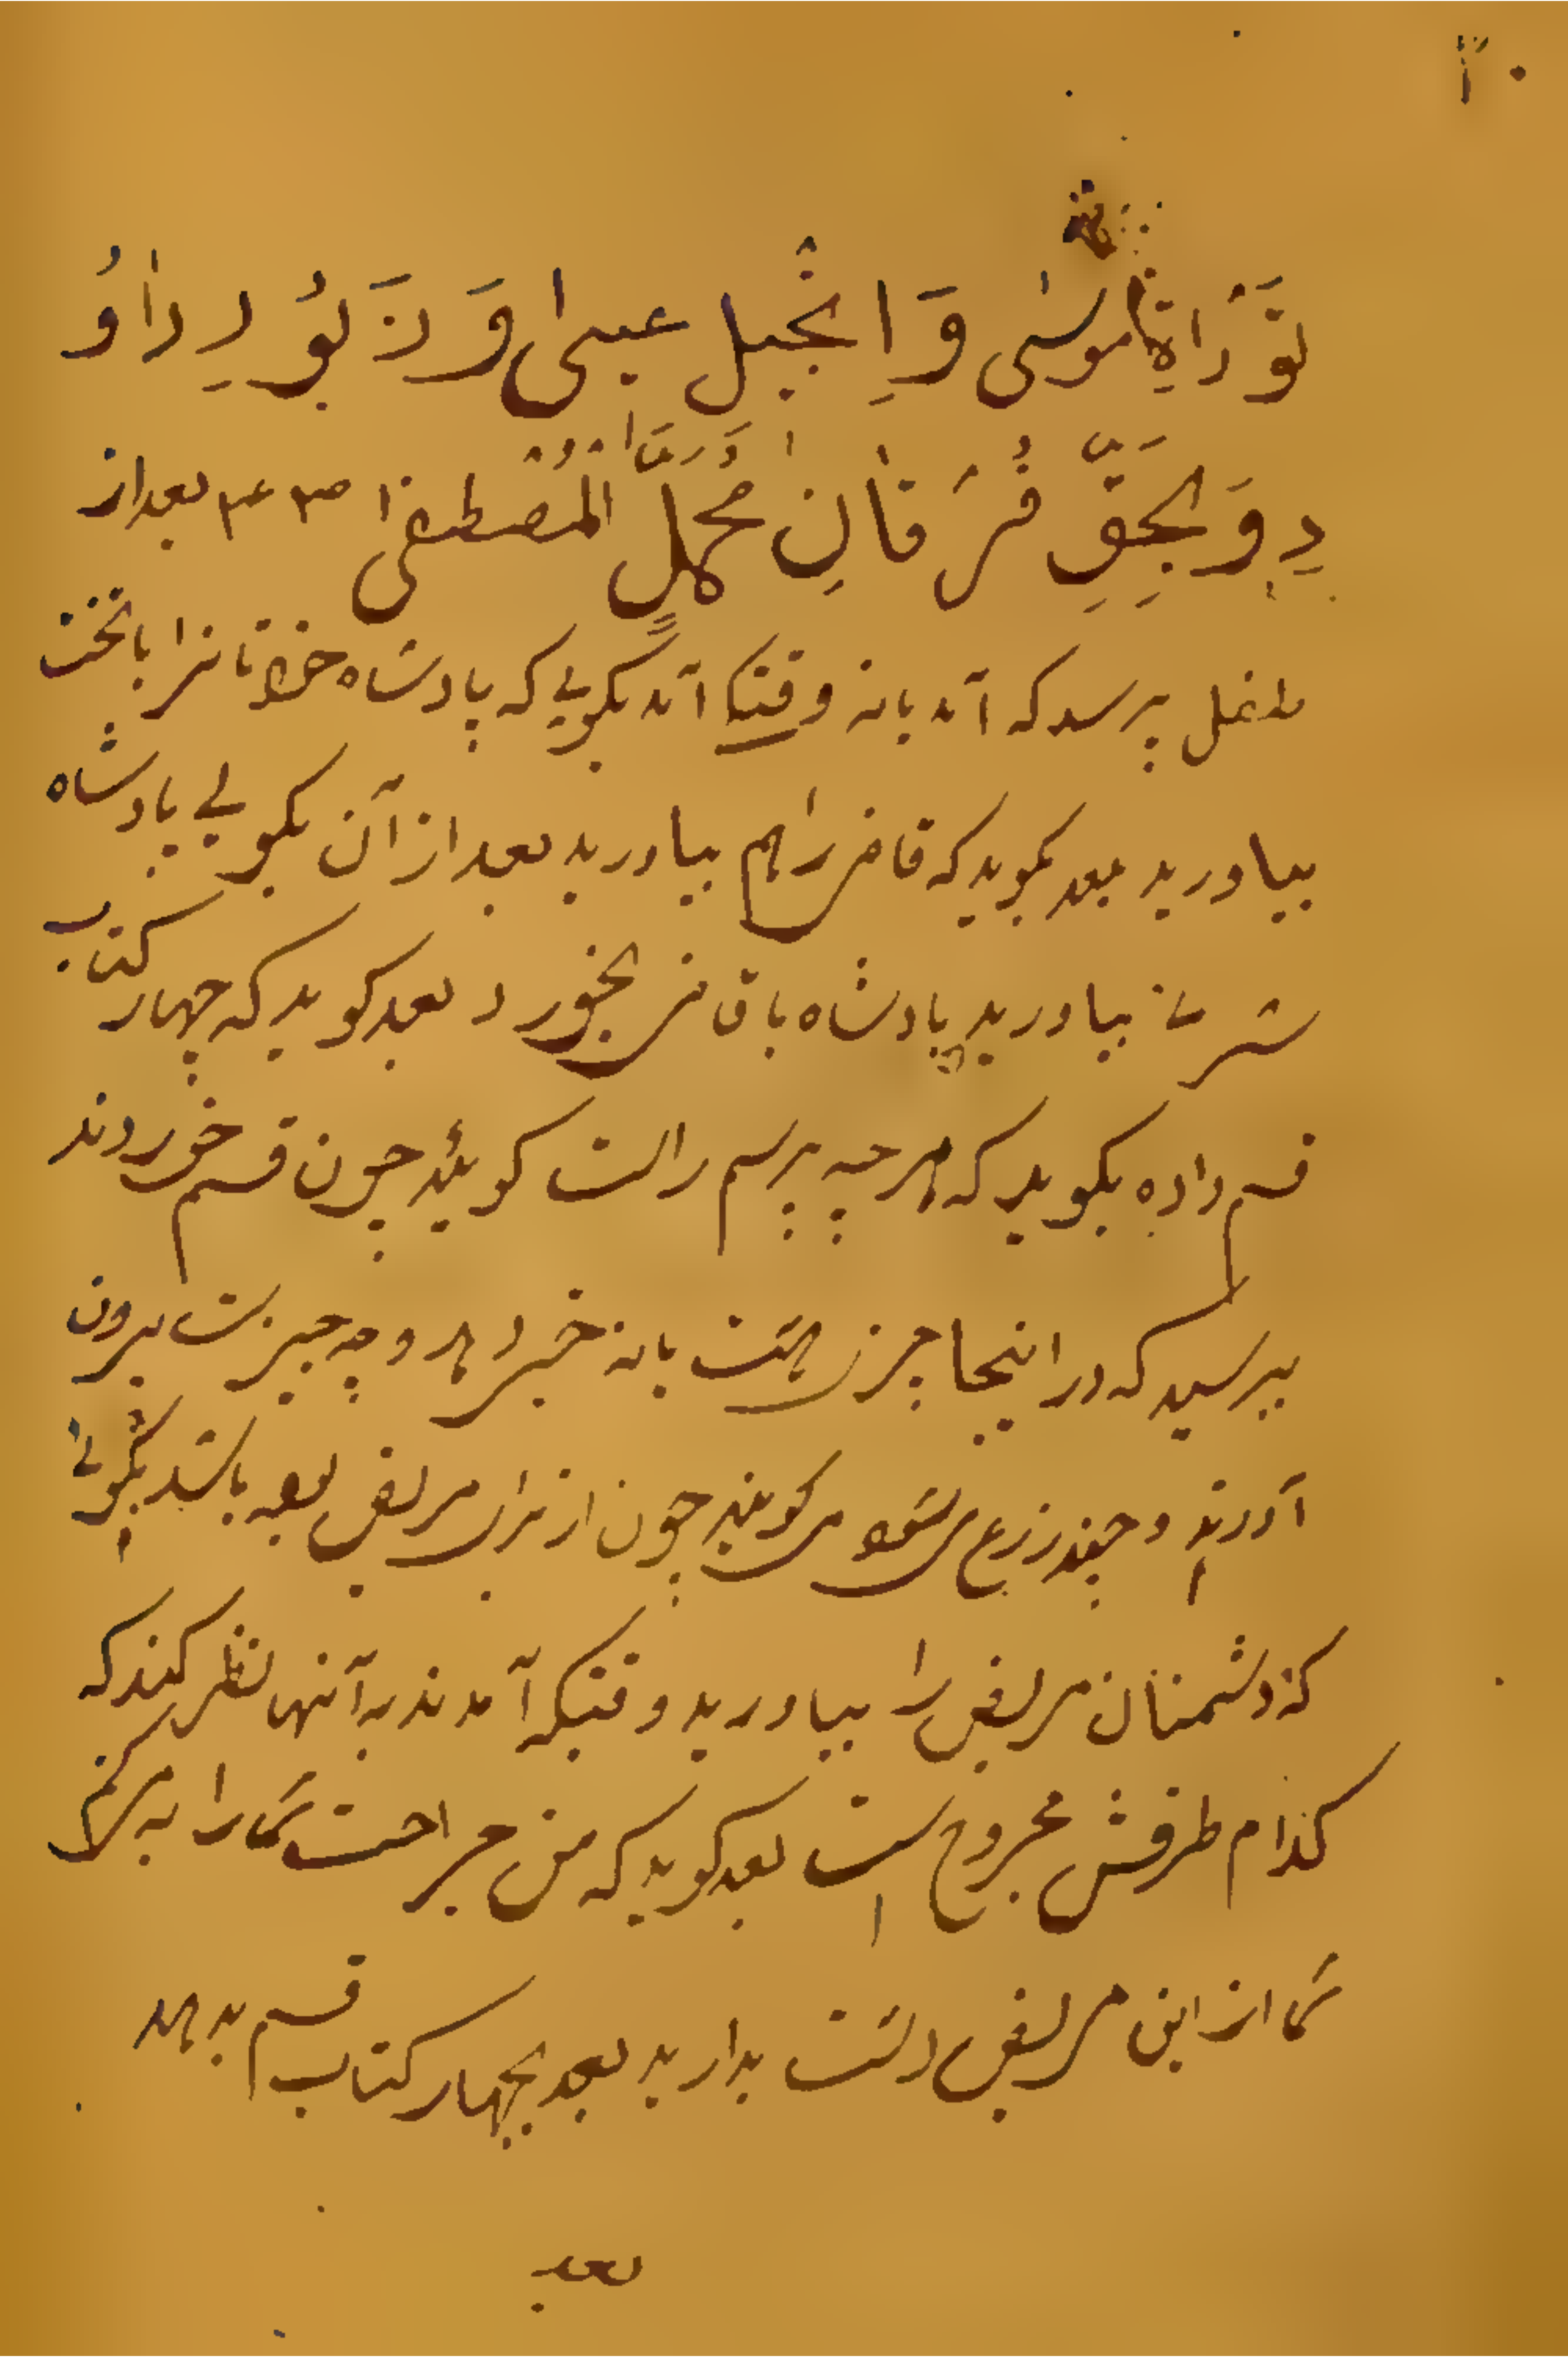 تَوْرَاةِ مُوسٰى وَاِنْجِيلِ عِيسٰى وَ زَبُورِ دٰاوُ
دِ وَبِحَقِّ فُرْقٰانِ مُحَمَّدٍ الْمُصْطَفٰى بعد از
طفل پرسد که آمد یا نه وقتیکه آمد بگویی که پادشاه خود تانرا با تخت
بیاورید بعد بگوید که قاضی را هم بیاورید بعد از آن بگویی پادشاه
بیاورید پادشاه با قاضی بخورد بعد گوید که چهار کتاب
قسم داده بگوید که هرچه پرسم راست گوئید چون قسم خوردند
بپرسید که در اینجا چیزی هست یا نه خبر دهد و چه چیز است بیرون
آورید و چند زرع میشود میگویند چون از برای مریض باشد بگوئی
که دشمنان مریض را بیاورید وقتیکه آمدند به آنها نظر کنند که
کدام طرفش مجروح است بعد گوید که من جراحت شما را به میکنم
شما از این مریض دست بدارید بعد بچهار کتاب قسم بدهد
بعد